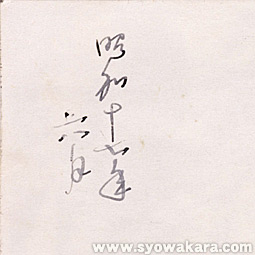 昭和十七年
六月
www.syowakara.com